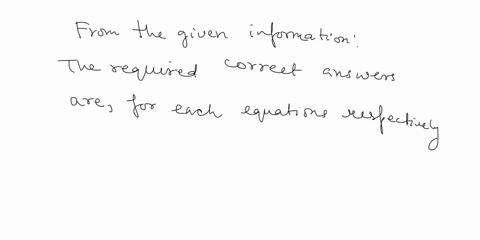 From the given information:
The required correct answers
are, for each equations respectively